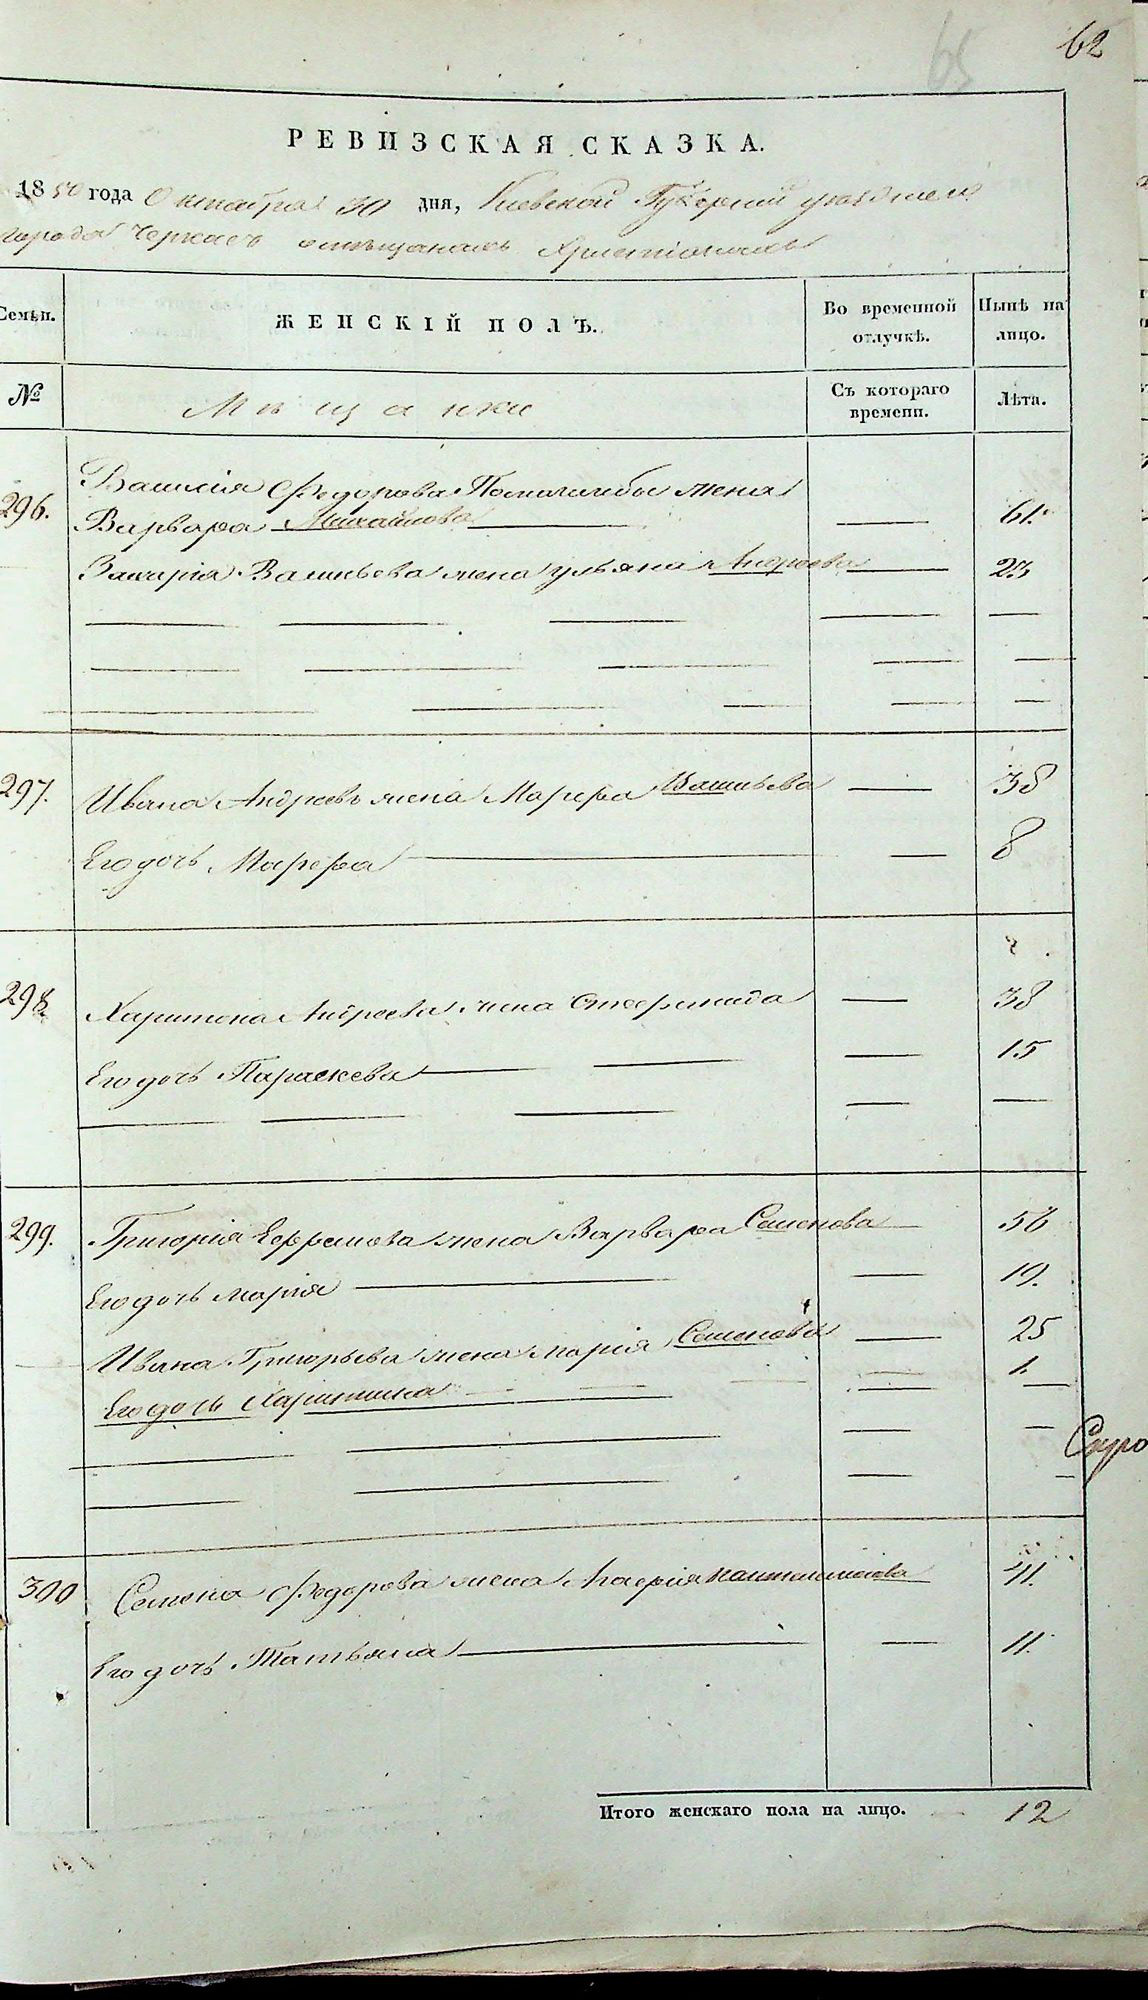 65
62
РЕВИЗСКАЯ СКАЗКА.
1850 года Октября 30 дня, Киевской Губерніи уезднаго
города Черкасъ о мѣщанахъ Христіанахъ
Семьи.
ЖЕНСКІЙ ПОЛЪ.
Во временной отлучкѣ.
Нынѣ на лицо.
№
Мѣщанки
Съ котораго времени.
Лѣта.
Василія Федорова жена
296. Варвара Михайлова 61.
Захарія Васильева жена Ульяна Андреева 23
297. Ивана Андреева жена Марфа Васильева 38
Его дочь Марфа 8
298. Харитона Андреева жена Степанида 38
Его дочь Параскева 15
299. Григорія Ефремова жена Варвара Семенова 56
Его дочь Марія 19.
Ивана Григорьева жена Марія Семенова 25
Его дочь Харитина 1.
Скуро
300 Семена Федорова жена 41.
Его дочь Татьяна 11.
Итого женскаго пола на лицо. 12